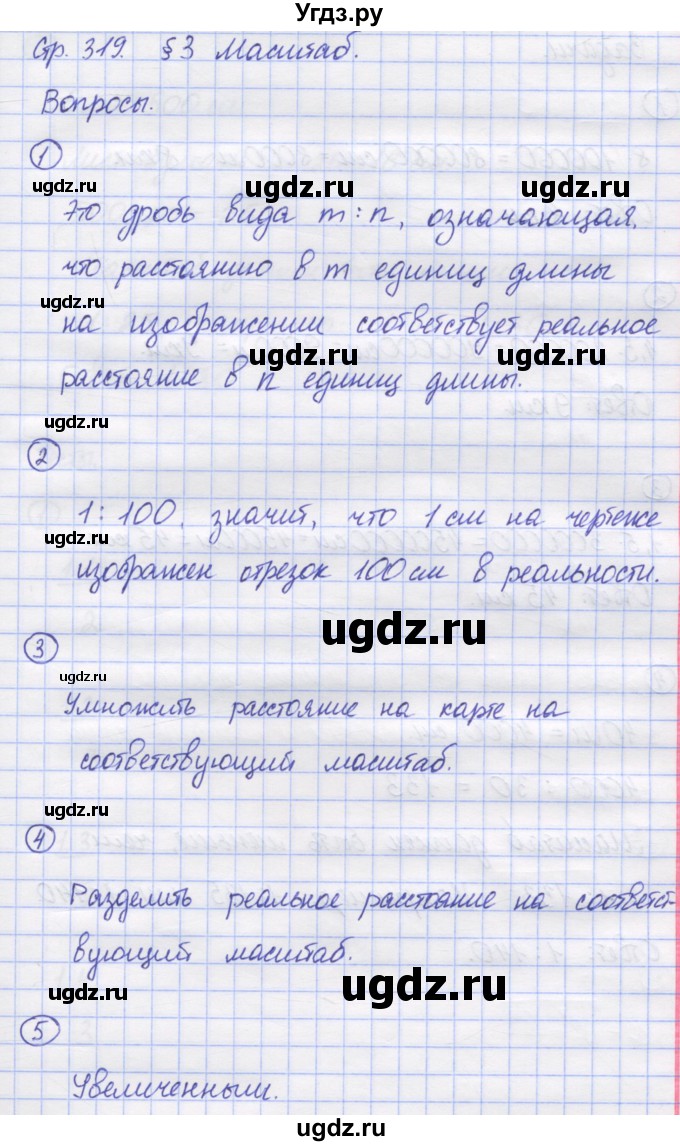 Угдз.ру
Стр. 319. §3 Масштаб.
Вопросы.
1
ugdz.ru ugdz.ru ugdz.ru
Это дробь вида m:n, означающая,
что расстоянию в m единиц длины
ugdz.ru
на изображении соответствует реальное
ugdz.ru ugdz.ru
расстояние в n единиц длины.
ugdz.ru
2
1:100, значит, что 1 см на чертеже
ugdz.ru
изображен отрезок 100 см в реальности.
ugdz.ru
3
ugdz.ru
Умножить расстояние на карте на
соответствующий масштаб.
ugdz.ru
4
Разделить реальное расстояние на соответст-
вующий масштаб.
ugdz.ru ugdz.ru
5
Увеличенным.
ugdz.ru